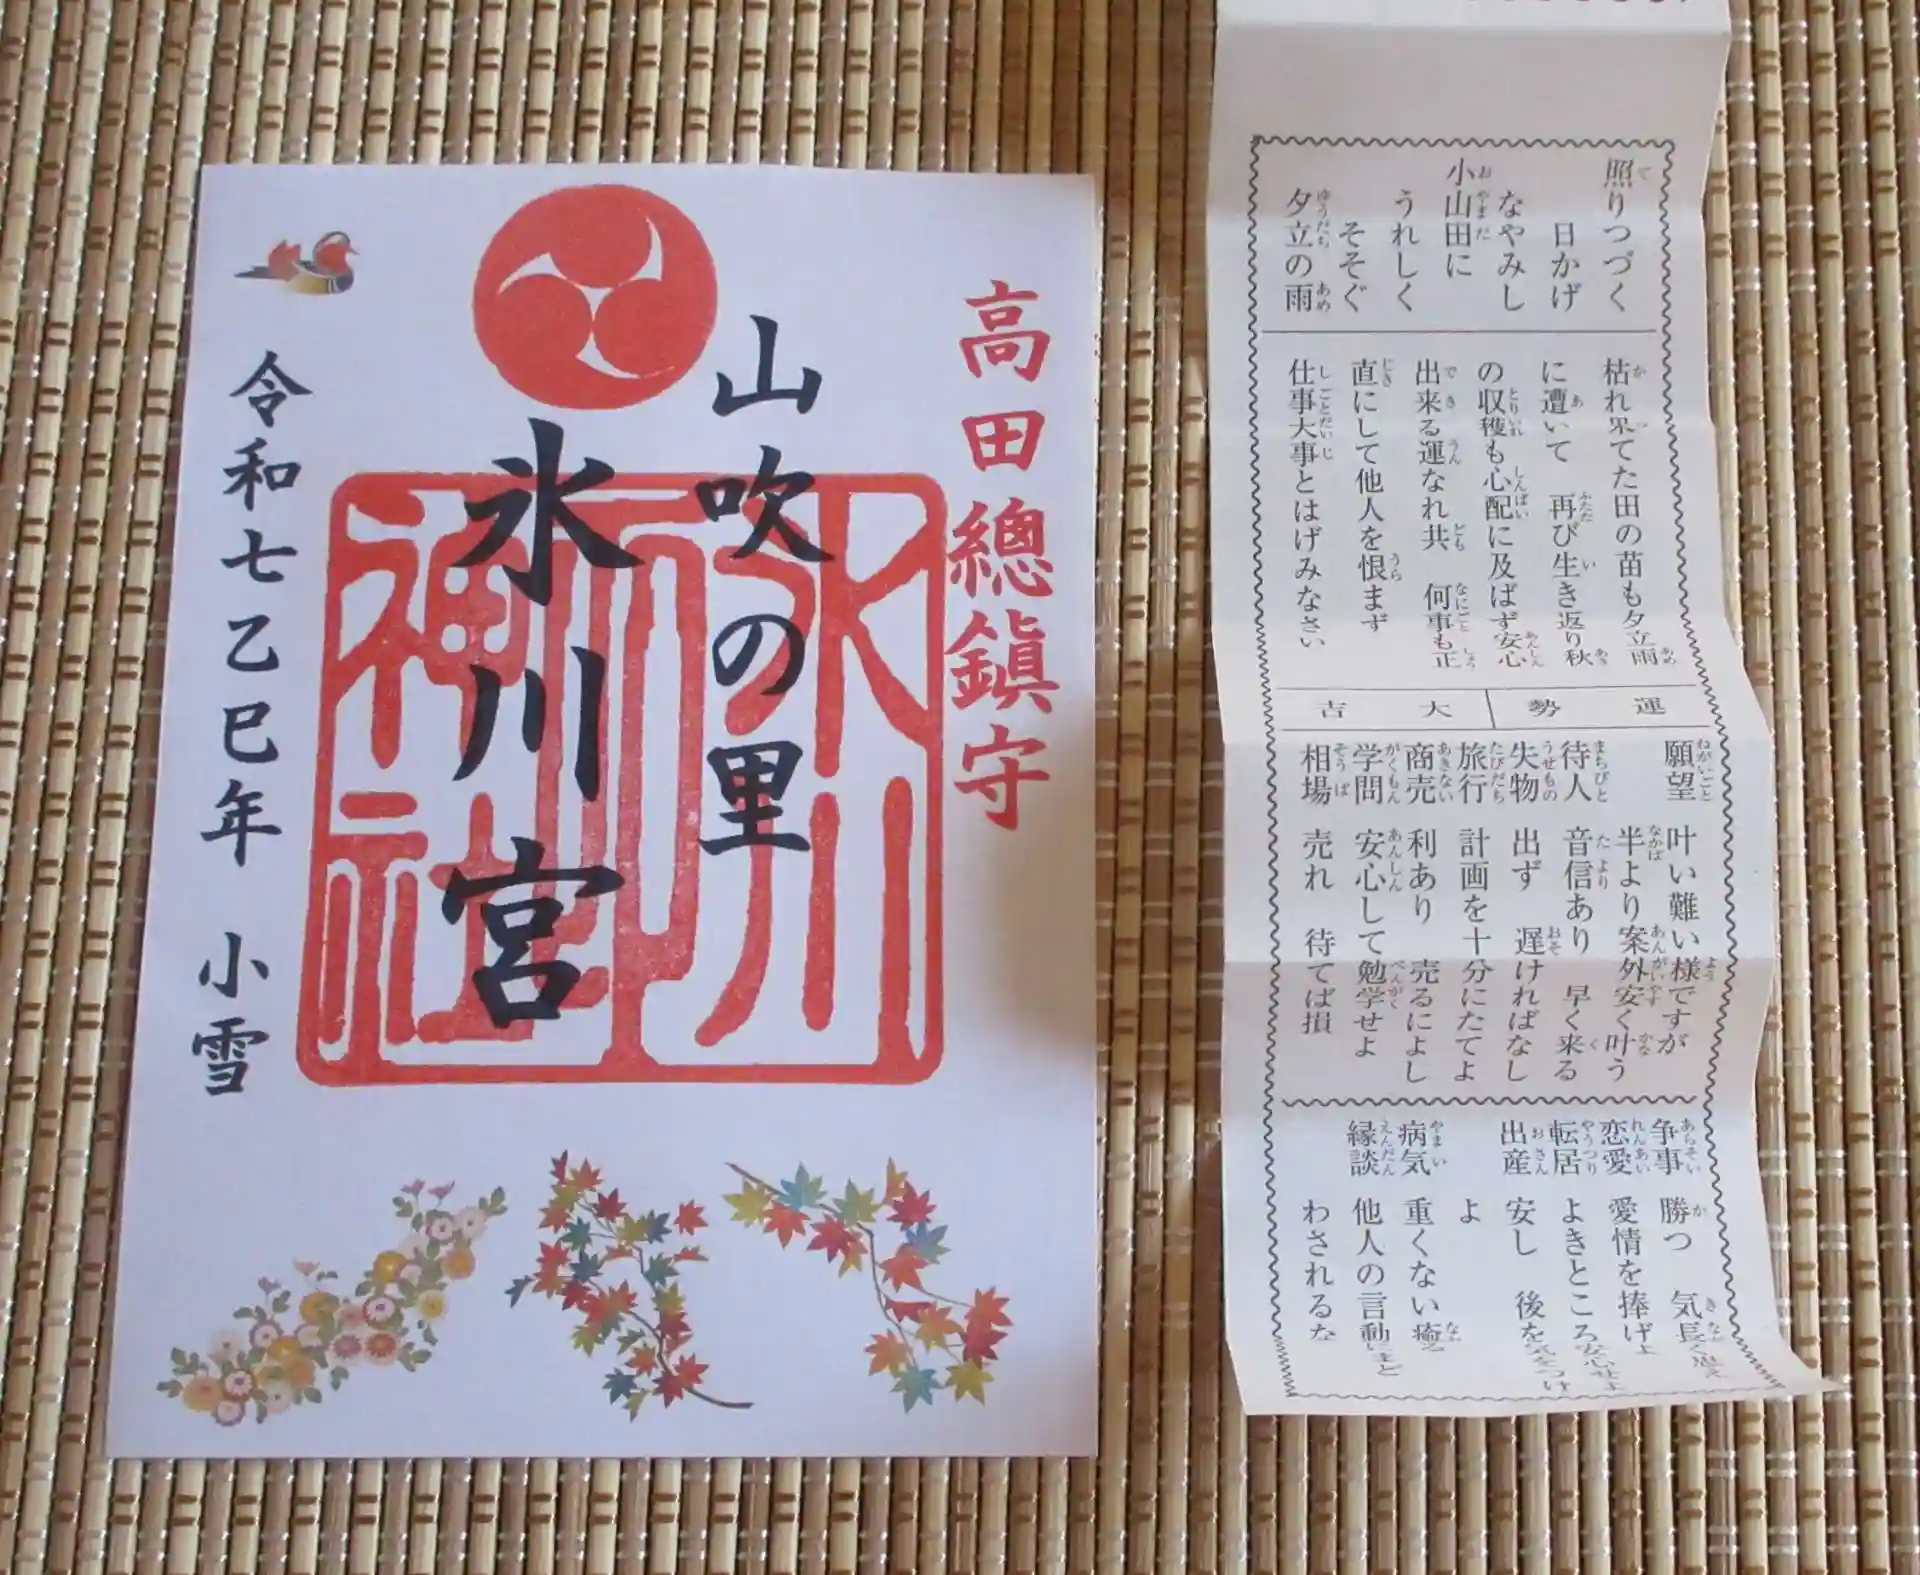 高田總鎮守
山吹の里
氷川宮
令和七乙巳年 小雪
氷川
神社
照りつづく
日かげ
なやみし
小山田に
うれしく
そそぐ
夕立の雨
枯れ果てた田の苗も夕立雨
に遭いて 再び生き返り秋
の収穫も心配に及ばず安心
出来る運なれ共 何事も正
直にして他人を恨まず
仕事大事とはげみなさい
運勢 大吉
願望 叶い難い様ですが
半より案外安く叶う
待人 音信あり 早く来る
失物 出ず 遅ければなし
旅行 計画を十分にたてよ
商売 利あり 売るによし
学問 安心して勉学せよ
相場 売れ 待てば損
争事 勝つ 気長く思え
恋愛 愛情を捧げよ
転居 よきところ安心せよ
出産 安し 後を気をつけ
よ
病気 重くない癒る
縁談 他人の言動にまど
わされるな